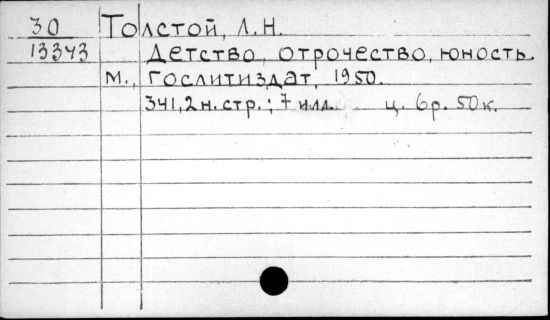 30 Толстой, Л.Н.
13343 Детство, отрочество, юность.
М., Гослитиздат, 1950.
341,2н.стр.; 7 илл. ц. 6р. 50к.